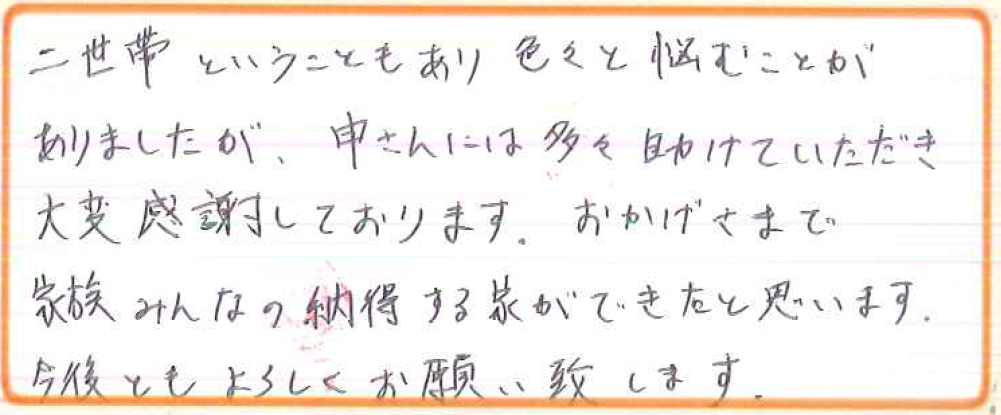 二世帯ということもあり色々と悩むことが
ありましたが、申さんには多々助けていただき
大変感謝しております。おかげさまで
家族みんなの納得する家ができたと思います。
今後ともよろしくお願い致します。